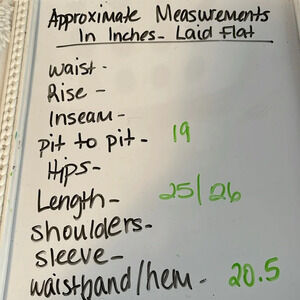 Approximate Measurements
In Inches - Laid Flat
waist -
Rise -
Inseam -
pit to pit - 19
Hips -
Length - 25/26
shoulders -
sleeve -
waistband/hem - 20.5